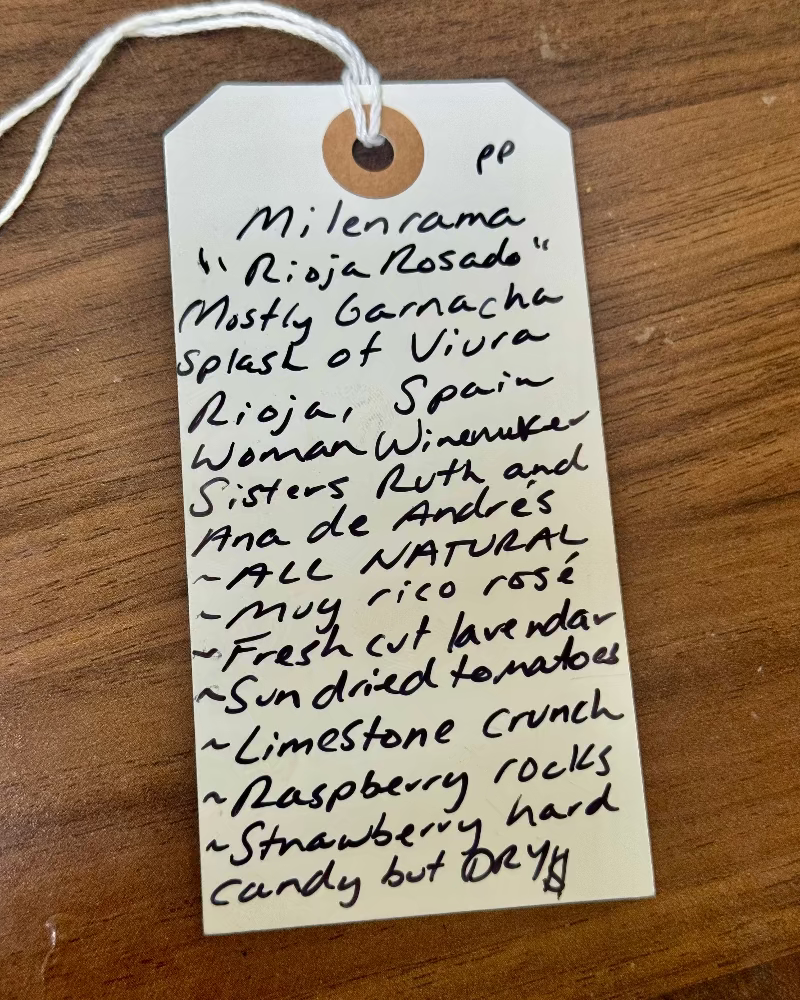 PP
Milenrama
"Rioja Rosado"
Mostly Garnacha
Splash of Viura
Rioja, Spain
Woman Winemaker
Sisters Ruth and
Ana de Andrés
~ALL NATURAL
~Muy rico rosé
~Fresh cut lavendar
~Sun dried tomatoes
~Limestone crunch
~Raspberry rocks
~Strawberry hard
candy but DRY